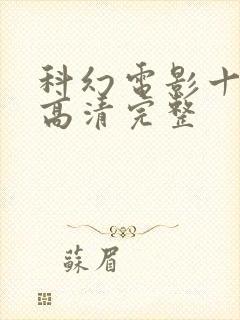 科幻电影十
高清完整
蘇眉